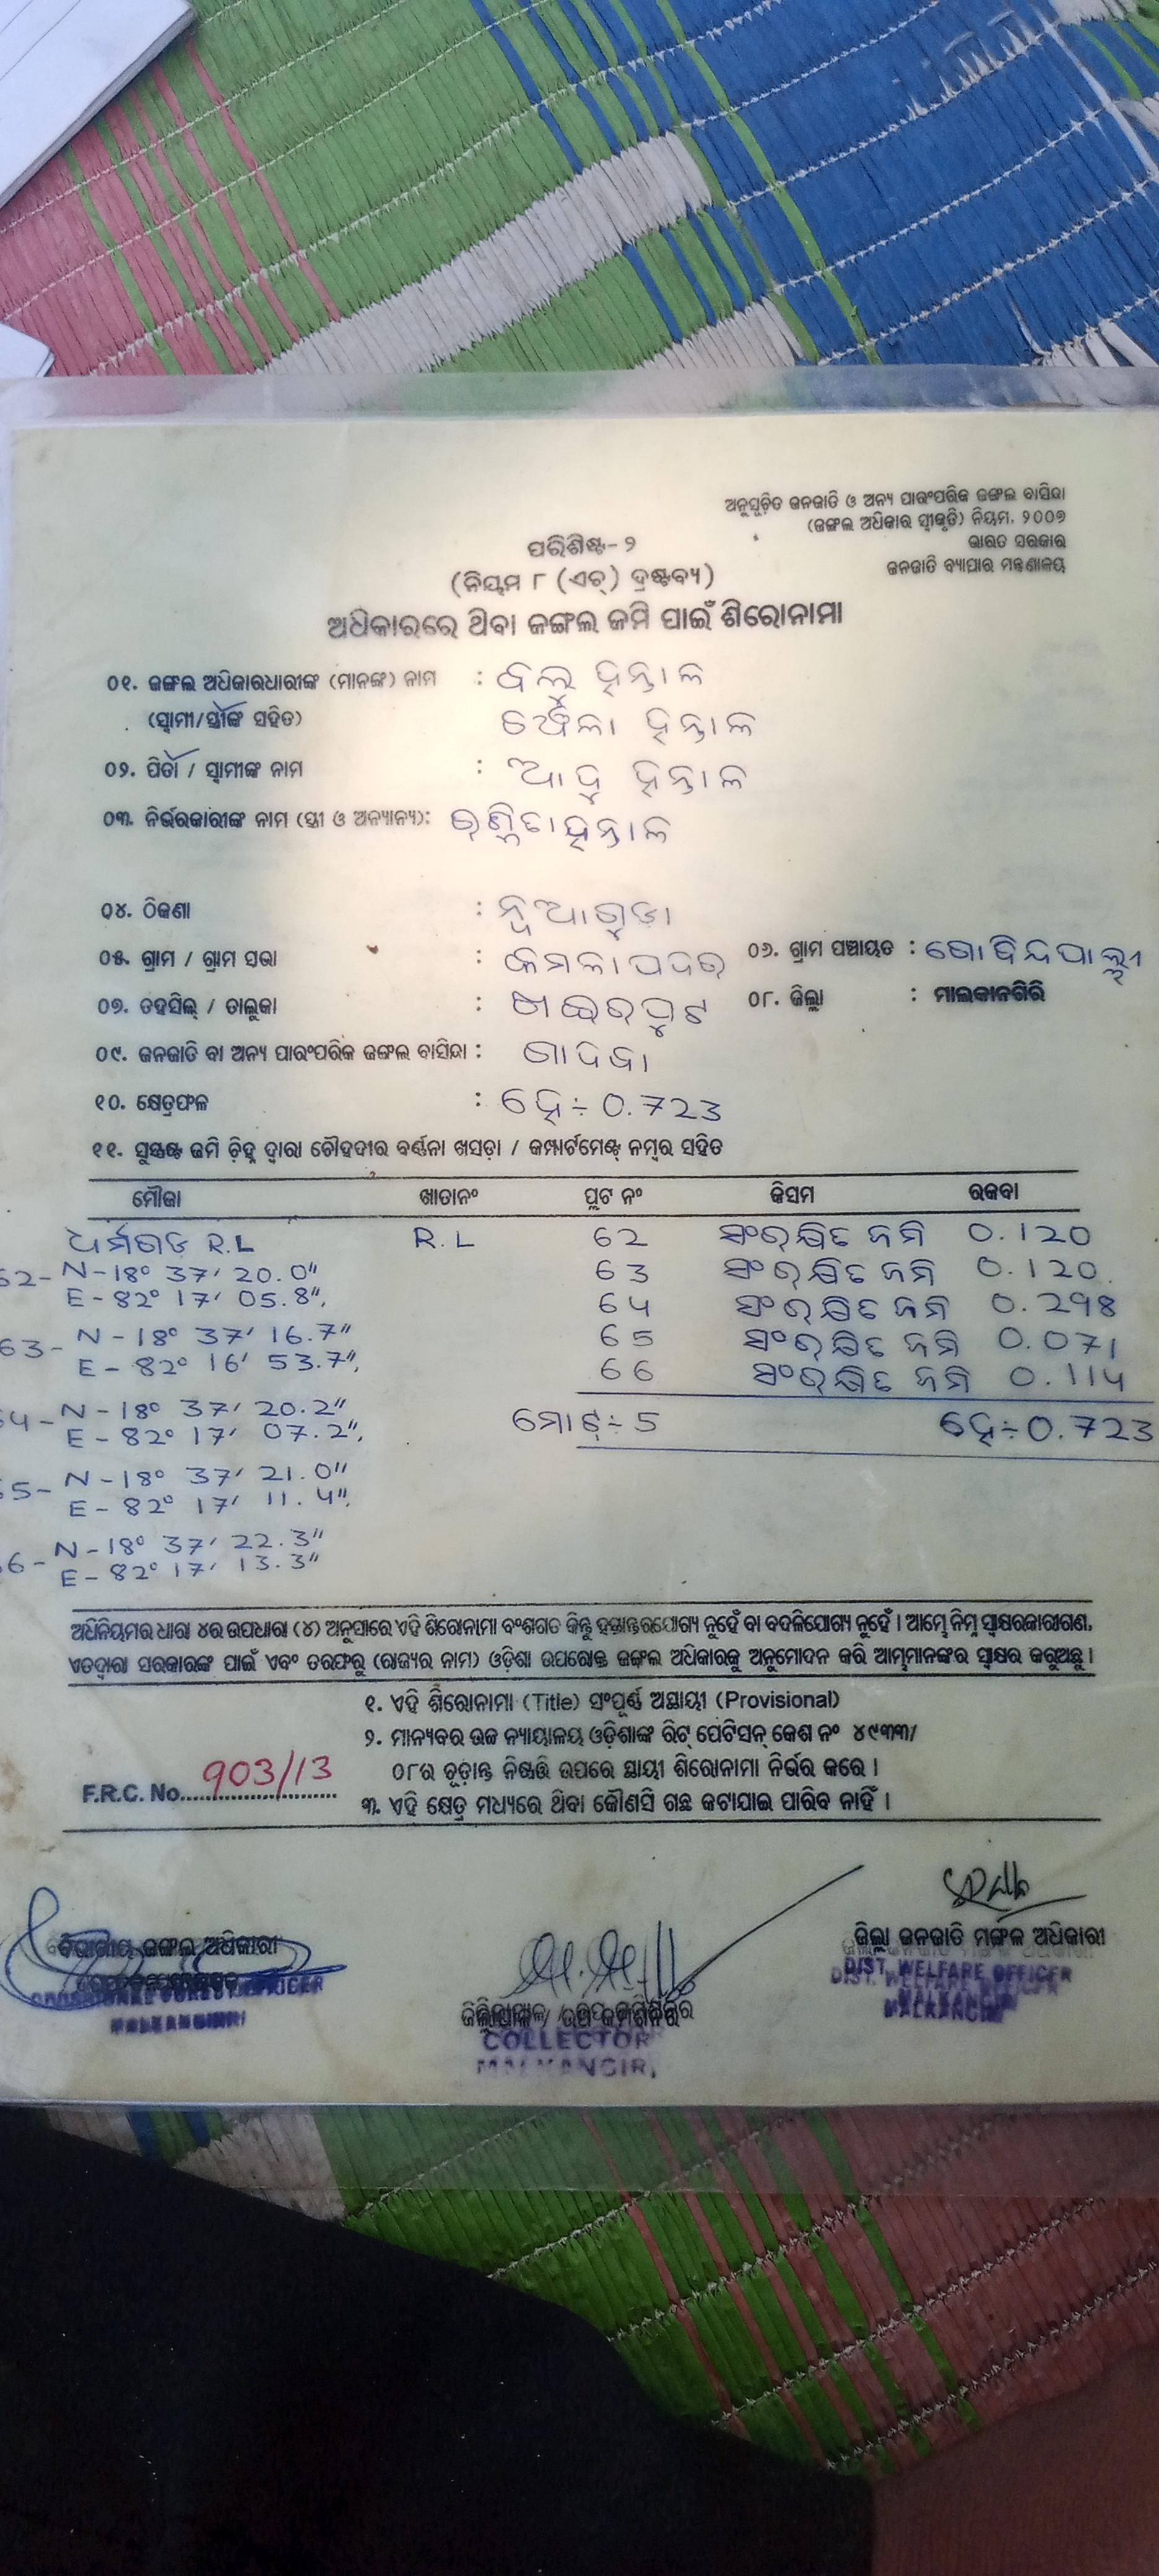 ଅନୁସୂଚିତ ଜନଜାତି ଓ ଅନ୍ୟ ପାରଂପରିକ ଜଙ୍ଗଲ ବାସିନ୍ଦା
(ଜଙ୍ଗଲ ଅଧିକାର ସ୍ୱୀକୃତି) ନିୟମ, ୨୦୦୭
ଭାରତ ସରକାର
ଜନଜାତି ବ୍ୟାପାର ମନ୍ତ୍ରଣାଳୟ
ପରିଶିଷ୍ଟ- ୨
(ନିୟମ ୮ (ଏଚ୍) ଦ୍ରଷ୍ଟବ୍ୟ)
ଅଧିକାରରେ ଥିବା ଜଙ୍ଗଲ ଜମି ପାଇଁ ଶିରୋନାମା
୦୧. ଜଙ୍ଗଲ ଅଧିକାରଧାରୀଙ୍କ (ମାନଙ୍କ) ନାମ : ବଲ୍ଲୁ ହନ୍ତାଳ
(ସ୍ୱାମୀ/ସ୍ତ୍ରୀଙ୍କ ସହିତ) ହନ୍ତାଳ
୦୨. ପିତା / ସ୍ୱାମୀଙ୍କ ନାମ : ଆଦୁ ହନ୍ତାଳ
୦୩. ନିର୍ଭରକାରୀଙ୍କ ନାମ (ସ୍ତ୍ରୀ ଓ ଅନ୍ୟାନ୍ୟ): ହନ୍ତାଳ
୦୪. ଠିକଣା : ନୂଆଗୁଡା
୦୫. ଗ୍ରାମ / ଗ୍ରାମ ସଭା : କମଳାପଦର ୦୬. ଗ୍ରାମ ପଞ୍ଚାୟତ : ଗୋବିନ୍ଦପାଲ୍ଲୀ
୦୭. ତହସିଲ୍ / ତାଲୁକା : ଖଇରପୁଟ ୦୮. ଜିଲ୍ଲା : ମାଲକାନଗିରି
୦୯. ଜନଜାତି ବା ଅନ୍ୟ ପାରଂପରିକ ଜଙ୍ଗଲ ବାସିନ୍ଦା : ଗାଦବା
୧୦. କ୍ଷେତ୍ରଫଳ : ହେ÷ 0.723
୧୧. ସୁସ୍ପଷ୍ଟ ଜମି ଚିହ୍ନ ଦ୍ୱାରା ଚୌହଦୀର ବର୍ଣ୍ଣନା ଖସଡ଼ା / କମ୍ପାର୍ଟମେଣ୍ଟ୍ ନମ୍ବର ସହିତ
ମୌଜା ଖାତାନଂ ପ୍ଲଟ ନଂ କିସମ ରକବା
ଧର୍ମଗଡ R.L R.L 62 ସଂରକ୍ଷିତ ଜମି 0.120
62- N-18° 37' 20.0" 63 ସଂରକ୍ଷିତ ଜମି 0.120
E- 82° 17' 05.8", 64 ସଂରକ୍ଷିତ ଜମି 0.298
63- N - 18° 37' 16.7" 65 ସଂରକ୍ଷିତ ଜମି 0.071
E- 82° 16' 53.7", 66 ସଂରକ୍ଷିତ ଜମି 0.114
64- N - 18° 37' 20.2" ମୋଟ୍÷ 5 ହେ÷0.723
E- 82° 17' 07.2",
65- N - 18° 37' 21.0"
E- 82° 17' 11.4",
66- N - 18° 37' 22.3"
E- 82° 17' 13.3"
ଅଧିନିୟମର ଧାରା ୪ର ଉପଧାରା (୪) ଅନୁସାରେ ଏହି ଶିରୋନାମା ବଂଶଗତ କିନ୍ତୁ ହସ୍ତାନ୍ତରଯୋଗ୍ୟ ନୁହେଁ ବା ବଦଳିଯୋଗ୍ୟ ନୁହେଁ । ଆମ୍ଭେ ନିମ୍ନ ସ୍ୱାକ୍ଷରକାରୀଗଣ,
ଏତଦ୍ଦ୍ୱାରା ସରକାରଙ୍କ ପାଇଁ ଏବଂ ତରଫରୁ (ରାଜ୍ୟର ନାମ) ଓଡ଼ିଶା ଉପରୋକ୍ତ ଜଙ୍ଗଲ ଅଧିକାରକୁ ଅନୁମୋଦନ କରି ଆମ୍ଭମାନଙ୍କର ସ୍ୱାକ୍ଷର କରୁଅଛୁ ।
୧. ଏହି ଶିରୋନାମା (Title) ସଂପୂର୍ଣ୍ଣ ଅସ୍ଥାୟୀ (Provisional)
୨. ମାନ୍ୟବର ଉଚ୍ଚ ନ୍ୟାୟାଳୟ ଓଡ଼ିଶାଙ୍କ ରିଟ୍ ପେଟିସନ୍ କେଶ ନଂ ୪୯୩୩/
୦୮ର ଚୂଡ଼ାନ୍ତ ନିଷ୍ପତ୍ତି ଉପରେ ସ୍ଥାୟୀ ଶିରୋନାମା ନିର୍ଭର କରେ ।
F.R.C. No. 903/13
୩. ଏହି କ୍ଷେତ୍ର ମଧ୍ୟରେ ଥିବା କୌଣସି ଗଛ କଟାଯାଇ ପାରିବ ନାହିଁ ।
ବିଭାଗୀୟ ଜଙ୍ଗଲ ଅଧିକାରୀ
ଜିଲ୍ଲା ଜନଜାତି ମଙ୍ଗଳ ଅଧିକାରୀ
DIST. WELFARE OFFICER
MALKANGIRI
COLLECTOR
MALKANGIRI